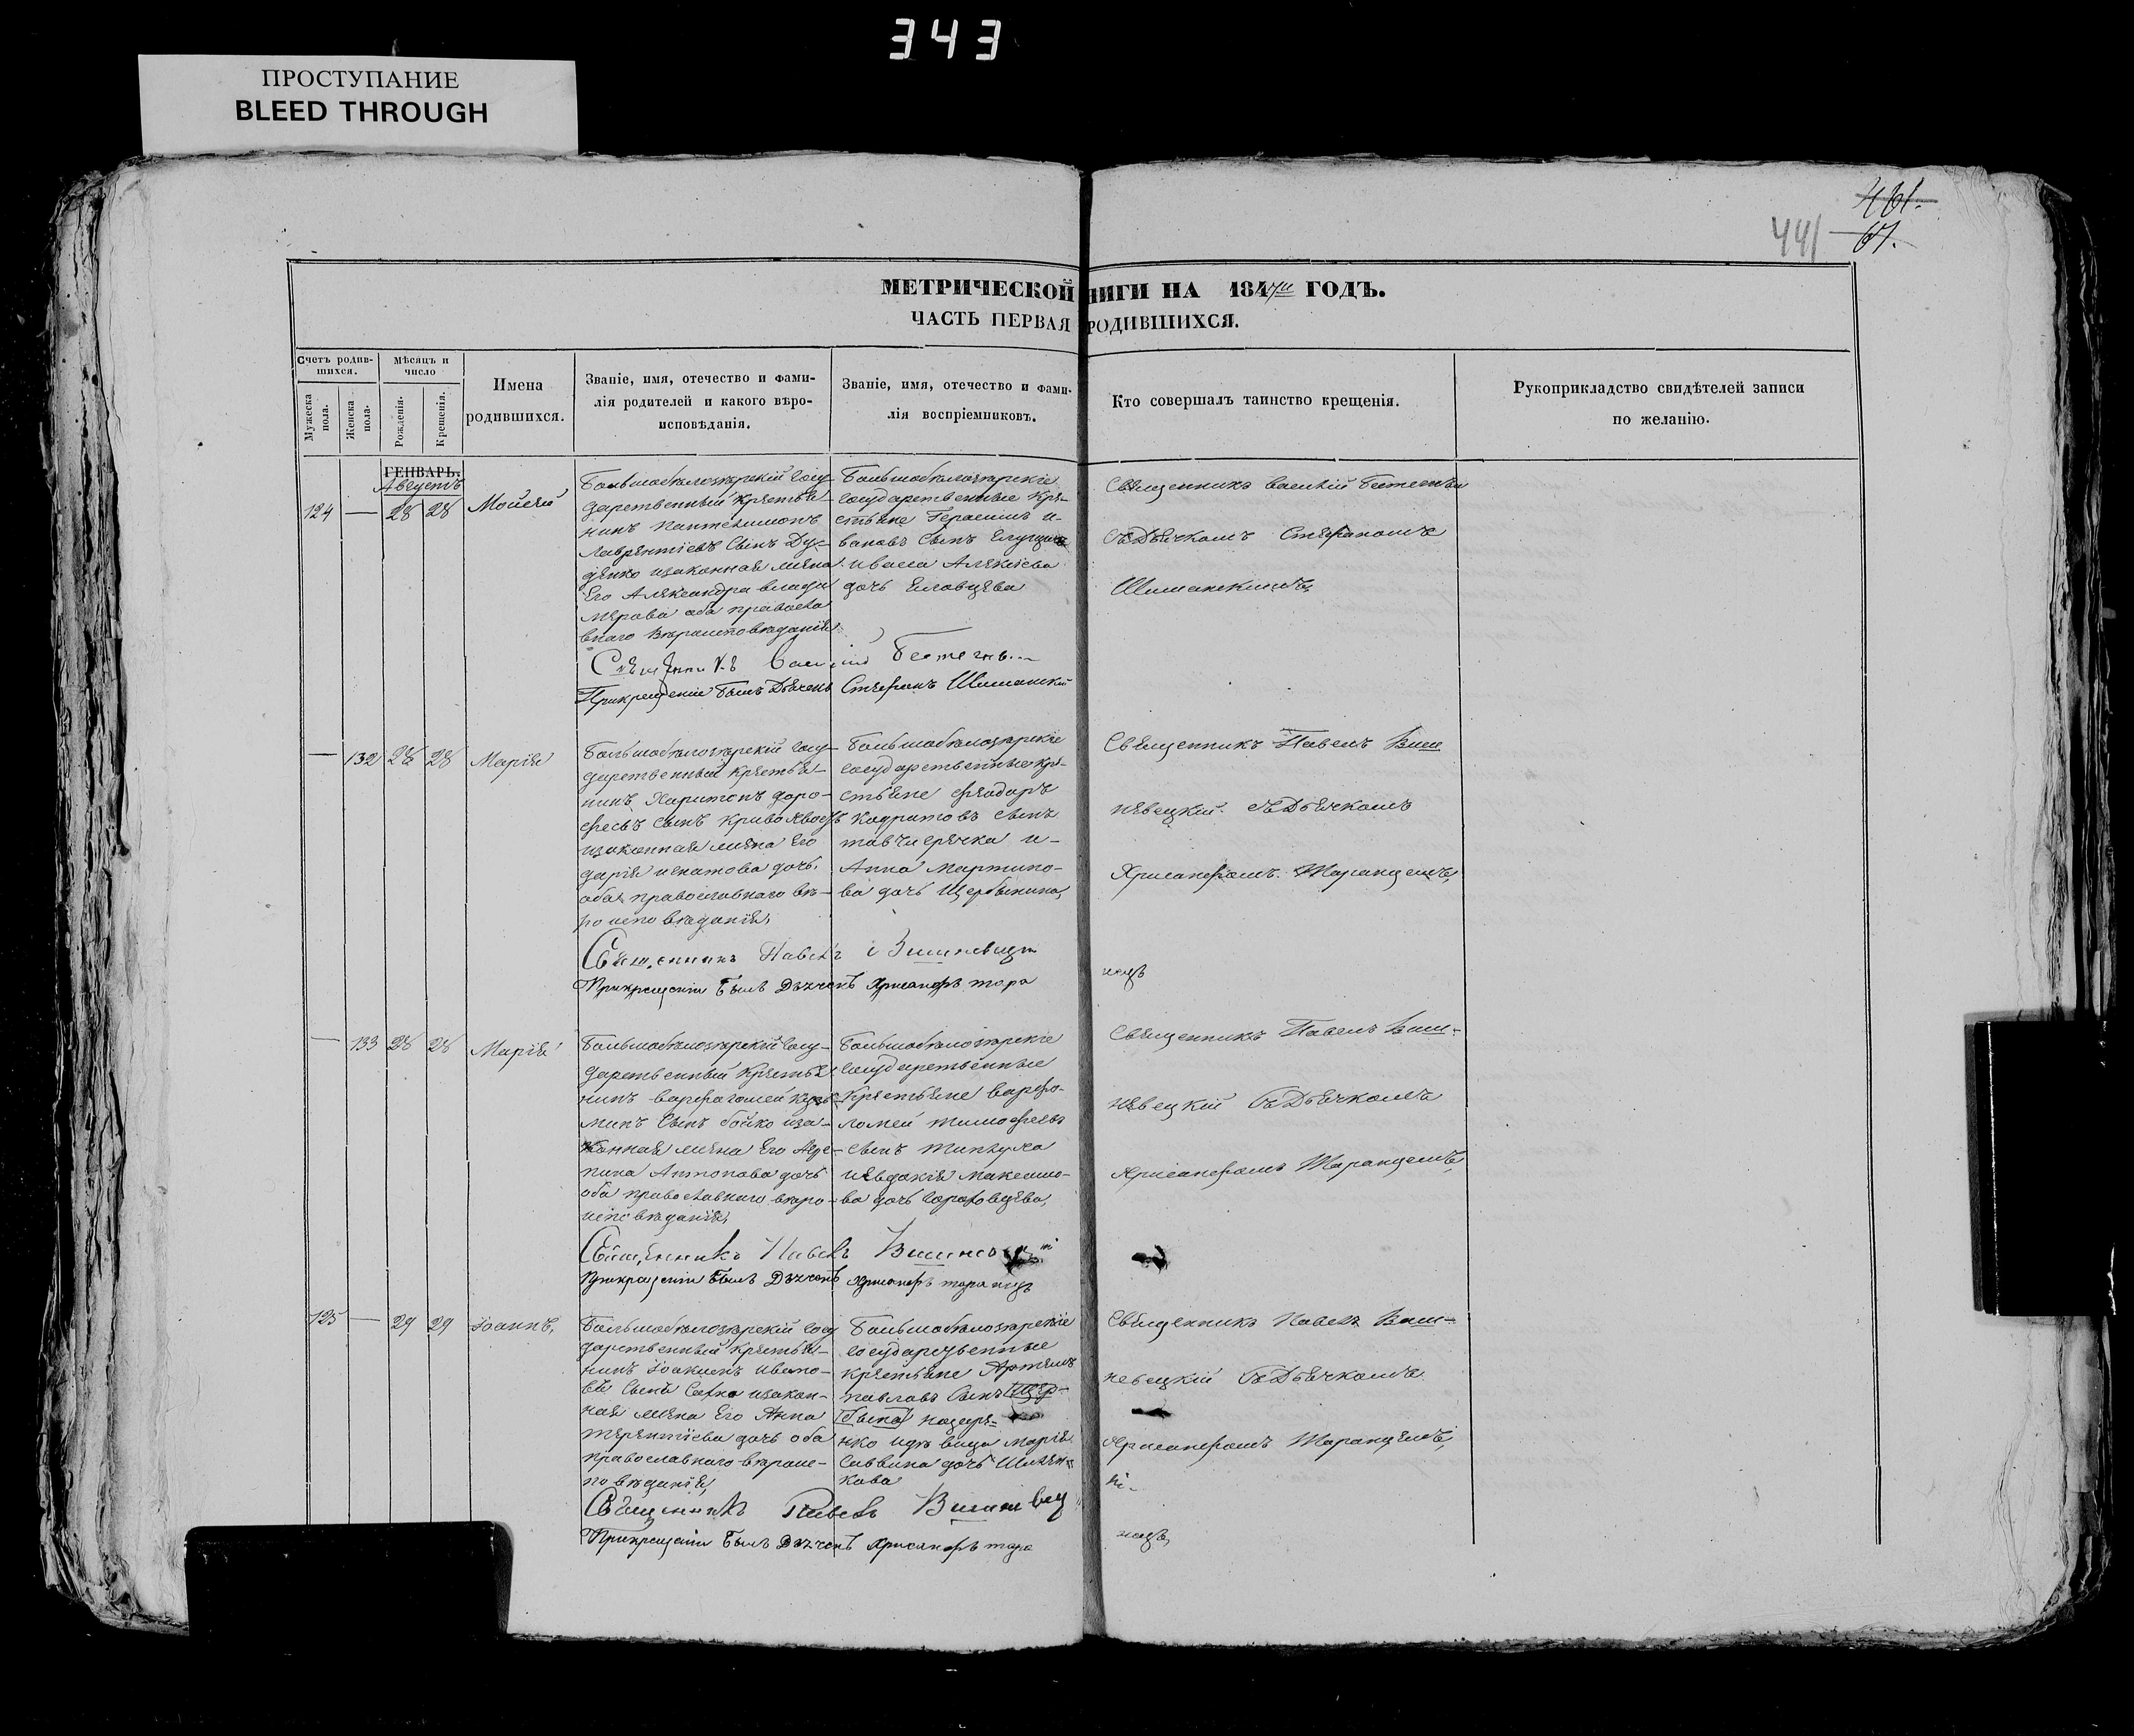 343
ПРОСТУПАНИЕ
BLEED THROUGH
461.
441 67.
МЕТРИЧЕСКОЙ НИГИ НА 1847й ГОДЪ.
ЧАСТЬ ПЕРВАЯ РОДИВШИХСЯ.
Счетъ родив-
шихся.
Мужеска
пола.
Женска
пола.
Мѣсяцъ и
число
Рожденія.
Крещенія.
Имена
родившихся.
Званіе, имя, отечество и фами-
лія родителей и какого вѣро-
исповѣданія.
Званіе, имя, отечество и фами-
лія воспріемниковъ.
Кто совершалъ таинство крещенія.
Рукоприкладство свидѣтелей записи
по желанію.
ГЕНВАРЬ.
Августъ
124 — 28 28 Мойсей
Большобѣлозѣрскій госу-
дарственный крестья-
нинъ Пантелимонъ
Лаврентіевъ сынъ
изаконная жена
Его Александра Влади
мѣрова оба правосла
внаго вѣроисповѣданія
Большобѣлозѣрскіе
государственные кре-
стьяне Герасимъ и-
вановъ сынъ
Алексіева
дочь
Священникъ Василій
съ Дьячкомъ Стефаномъ
Шиманскимъ
Священникъ Василій
При крещеніи былъ Дьячекъ Стефанъ Шиманскій
— 132 28 28 Марія
Большобѣлозѣрскій госу-
дарственный крестья-
нинъ Харитонъ доро-
феевъ сынъ
изаконная жена Его
дарія игнатова дочь,
оба православнаго вѣ-
роисповѣданія,
Большобѣлозѣрскіе
государственные кре-
стьяне феодоръ
кодратовъ сынъ
и-
Анна Мартино-
ва дочь Щербинина,
Священникъ Павелъ Виш
невецкій. съ Дьячкомъ
Хрисанфомъ. Таранцемъ,
Священникъ Павелъ Вишневецкій
При крещеніи былъ Дьячекъ Хрисанфъ тара
нецъ
— 133 28 28 Марія
Большобѣлозѣрскій госу-
дарственный крестья
нинъ варфоломей кузь-
минъ сынъ бойко иза-
конная жена Его Агре-
пина Антонова дочь
оба православнаго вѣро-
исповѣданія,
Большобѣлозѣрскіе
государственные
крестьяне варфо-
ломей тимофеевъ
сынъ
иевдокія максимо-
ва дочь
Священникъ Павелъ Виш-
невецкій съ Дьячкомъ
Хрисанфомъ Таранцемъ,
Священникъ Павелъ
При крещеніи былъ Дьячекъ Хрисанфъ таранецъ
125 — 29 29 Іоаннъ,
Большобѣлозѣрскій госу
дарственный крестья-
нинъ Іоакимъ Ивано-
въ сынъ изакон-
ная жена Его Анна
терентіева дочь оба
православнаго вѣроис-
повѣданія,
Большобѣлозѣрскіе
государственные
крестьяне Артемъ
павловъ сынъ Щер-
бина назаре-
нко идѣвица Марія
Саввина дочь
кова
Священникъ Павелъ Виш-
невецкій съ Дьячкомъ
Хрисанфомъ Таранцемъ,
Священникъ Павелъ Вишневец
кі-
При крещеніи былъ Дьячекъ Хрисанфъ тара
нецъ,